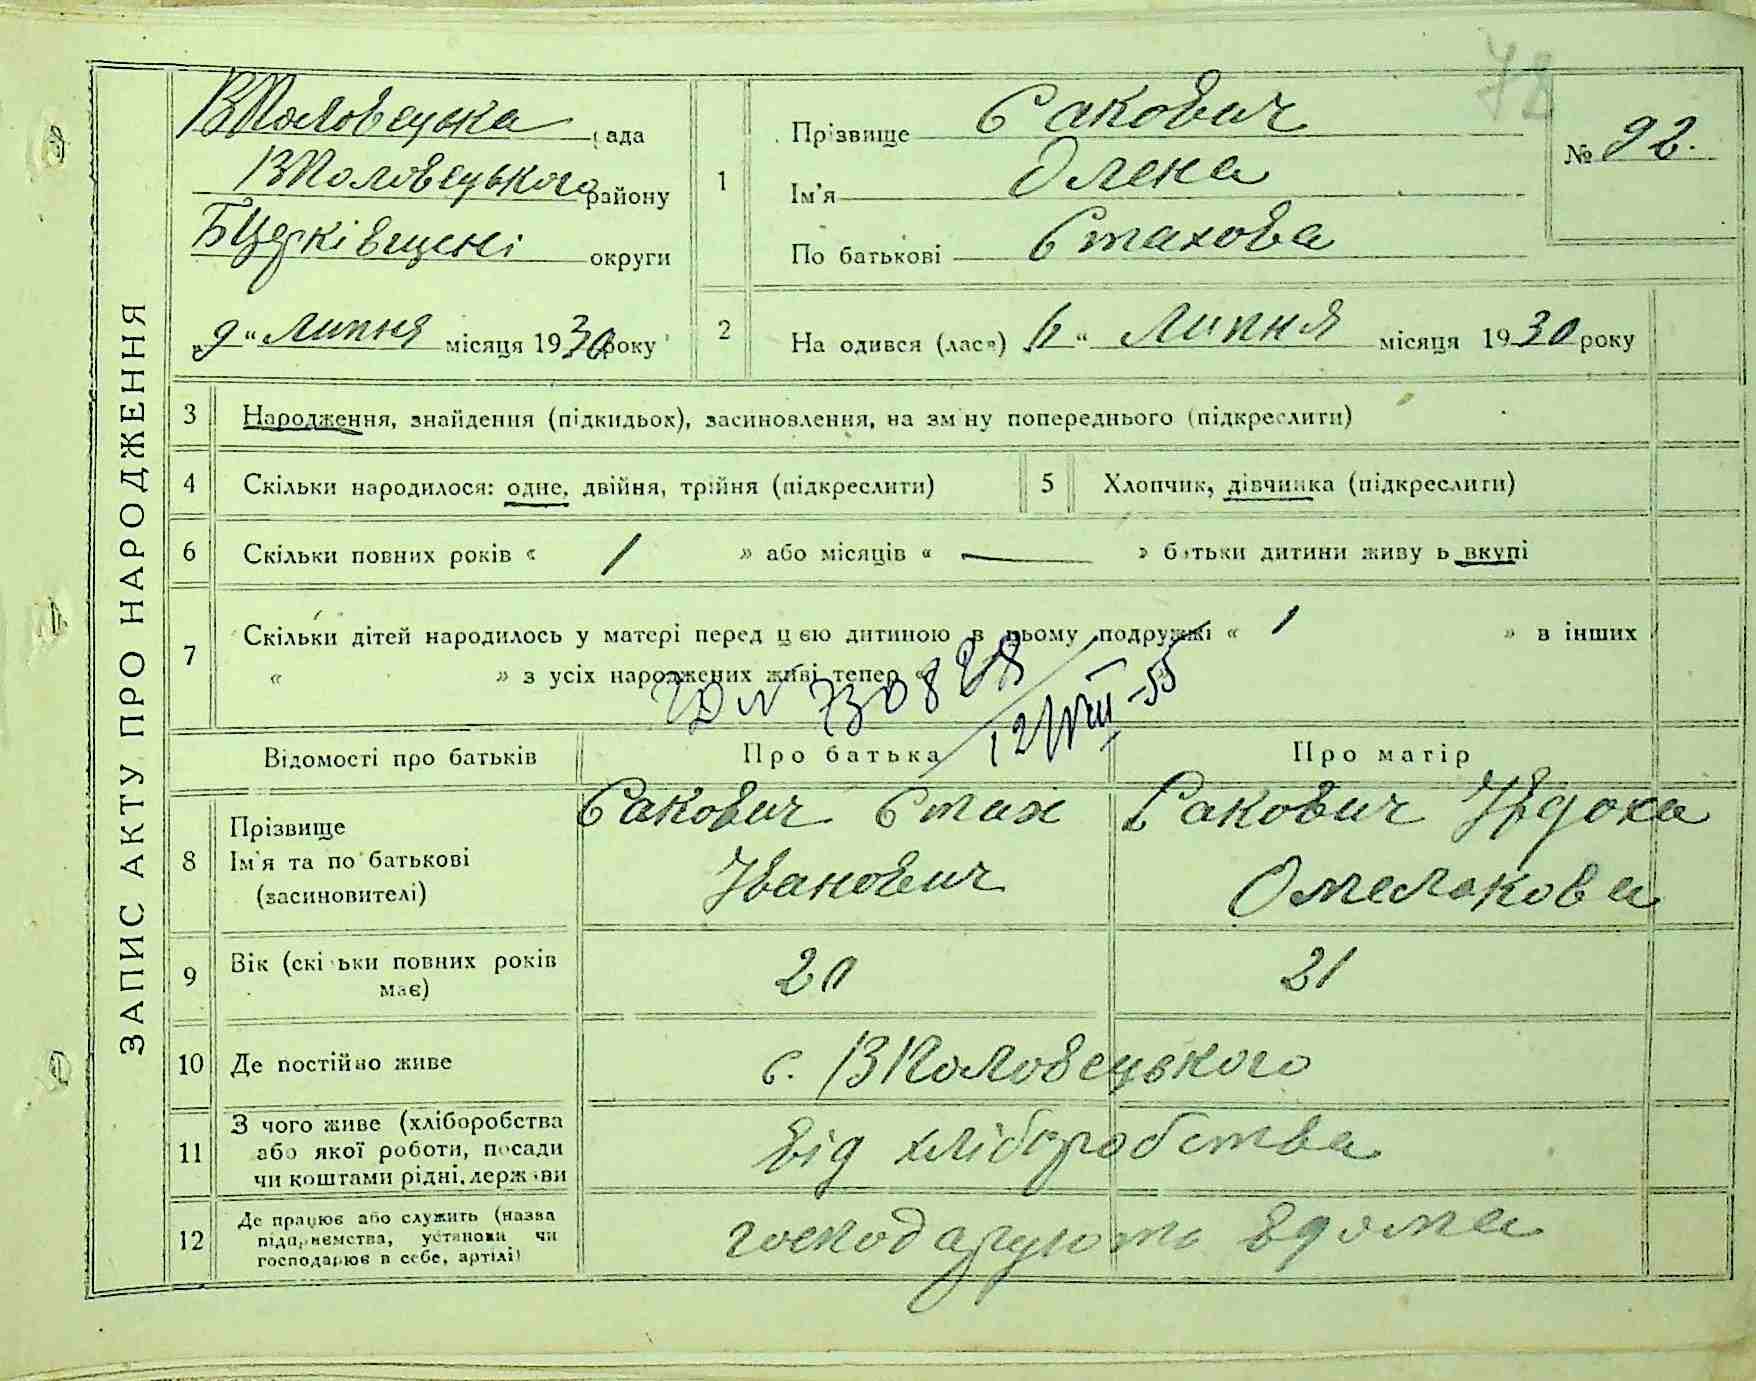 72
ЗАПИС АКТУ ПРО НАРОДЖЕННЯ
ВПоловецька рада
ВПоловецького району
БЦерківщені округи
„9“ липня місяця 1930 року
1
Прізвище Сакович
Ім'я Олена
По батькові Стахова
№ 92.
2 На одився (лася) „6“ липня місяця 1930 року
3 Народження, знайдення (підкидьох), засиновлення, на зм ну попереднього (підкреслити)
4 Скільки народилося: одне, двійня, трійня (підкреслити) 5 Хлопчик, дівчинка (підкреслити)
6 Скільки повних років « 1 » або місяців « — » батьки дитини живу ь вкупі
7 Скільки дітей народилось у матері перед цією дитиною в цьому подружжі « 1 » в інших
« » з усіх народжених живі тепер «
12/VIII-55
Відомості про батьків Про батька Про матір
8 Прізвище
Ім'я та по батькові
(засиновителі)
Сакович Стах
Іванович
Сакович Явдоха
Омелькова
9 Вік (скільки повних років
має)
20 21
10 Де постійно живе с. ВПоловецького
11 З чого живе (хліборобства
або якої роботи, посади
чи коштами рідні, держави
від хліборобства
12 Де працює або служить (назва
підприємства, установи чи
господарює в себе, артілі)
господарують вдома